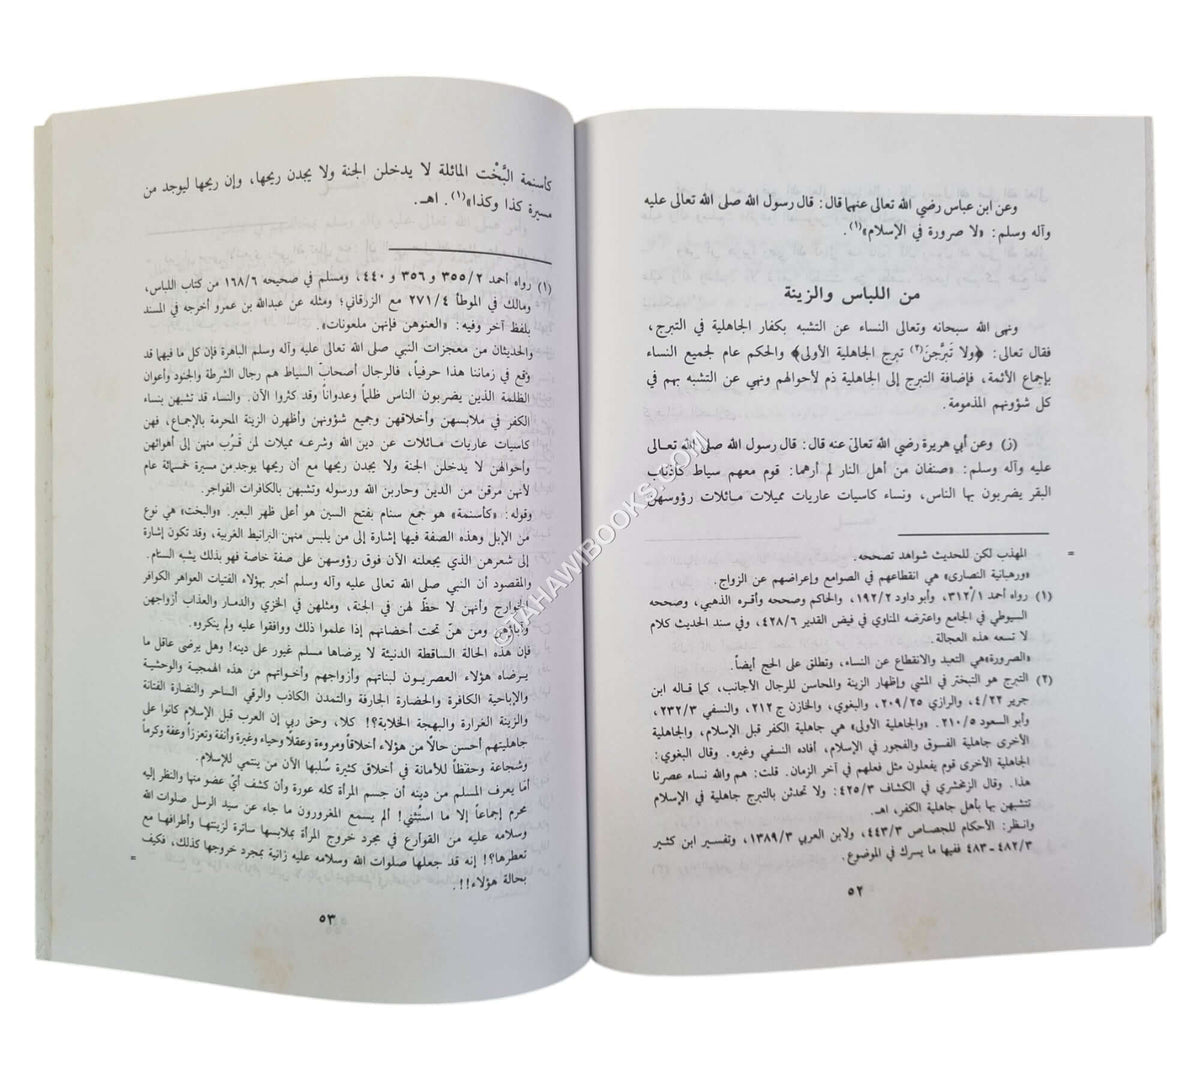 وعن ابن عباس رضي الله تعالى عنهما قال: قال رسول الله صلى الله تعالى عليه
وآله وسلم: «لا صرورة في الإسلام»(١).
من اللباس والزينة
ونهى الله سبحانه وتعالى النساء عن التشبه بكفار الجاهلية في التبرج،
فقال تعالى: ﴿ولا تَبرَّجنَ(٢) تبرج الجاهلية الأولى﴾ والحكم عام لجميع النساء
بإجماع الأئمة، فإضافة التبرج إلى الجاهلية ذم لأحوالهم ونهي عن التشبه بهم في
كل شؤونهم المذمومة.
(ز) وعن أبي هريرة رضي الله تعالى عنه قال: قال رسول الله صلى الله تعالى
عليه وآله وسلم: «صنفان من أهل النار لم أرهما: قوم معهم سياط كأذناب
البقر يضربون بها الناس، ونساء كاسيات عاريات مميلات مائلات رؤوسهن
= المهذب لكن للحديث شواهد تصححه.
«ورهبانية النصارى» هي انقطاعهم في الصوامع وإعراضهم عن الزواج.
(١) رواه أحمد ٣١٢/١، وأبو داود ١٩٢/٢، والحاكم وصححه وأقره الذهبي، وصححه
السيوطي في الجامع واعترضه المناوي في فيض القدير ٤٢٨/٦، وفي سند الحديث كلام
لا تسعه هذه العجالة.
«الصرورة» هي التعبد والانقطاع عن النساء، وتطلق على الحج أيضاً.
(٢) التبرج هو التبختر في المشي وإظهار الزينة والمحاسن للرجال الأجانب، كما قاله ابن
جرير ٤/٢٢، والرازي ٢٠٩/٢٥، والبغوي، والخازن ج٢١٢، والنسفي ٢٣٢/٣،
وأبو السعود ٢١٠/٥. «والجاهلية الأولى» هي جاهلية الكفر قبل الإسلام، والجاهلية
الأخرى جاهلية الفسوق والفجور في الإسلام، أفاده النسفي وغيره. وقال البغوي:
الجاهلية الأخرى قوم يفعلون مثل فعلهم في آخر الزمان. قلت: هم والله نساء عصرنا
هذا. وقال الزمخشري في الكشاف ٤٢٥/٣: ولا تحدثن بالتبرج جاهلية في الإسلام
تتشبهن بها بأهل جاهلية الكفر، اهـ.
وانظر: الأحكام للجصاص ٤٤٣/٣، ولابن العربي ١٣٨٩/٣، وتفسير ابن كثير
٤٨٢/٣ ـ ٤٨٣ ففيها ما يسرك في الموضوع.
٥٢
كأسنمة البُّخْت المائلة لا يدخلن الجنة ولا يجدن ريحها، وإن ريحها ليوجد من
مسيرة كذا وكذا»(١). اهـ.
(١) رواه أحمد ٣٥٥/٢ و ٣٥٦ و ٤٤٠، ومسلم في صحيحه ١٦٨/٦ من كتاب اللباس،
ومالك في الموطأ ٢٧١/٤ مع الزرقاني؛ ومثله عن عبدالله بن عمرو أخرجه في المسند
بلفظ آخر وفيه: «العنوهن فإنهن ملعونات».
والحديثان من معجزات النبي صلى الله تعالى عليه وآله وسلم الباهرة فإن كل ما فيهما قد
وقع في زماننا هذا حرفياً، فالرجال أصحاب السياط هم رجال الشرطة والجنود وأعوان
الظلمة الذين يضربون الناس ظلماً وعدواناً وقد كثروا الآن. والنساء قد تشبهن بنساء
الكفر في ملابسهن وأخلاقهن وجميع شؤونهن وأظهرن الزينة المحرمة بالإجماع، فهن
كاسيات عاريات مائلات عن دين الله وشرعه مميلات لمن قَرُب منهن إلى أهوائهن
وأحوالهن لا يدخلن الجنة ولا يجدن ريحها مع أن ريحها يوجد من مسيرة خمسمائة عام
لأنهن مرقن من الدين وحاربن الله ورسوله وتشبهن بالكافرات الفواجر.
وقوله: «كأسنمة» هو جمع سنام بفتح السين هو أعلى ظهر البعير. «والبخت» هي نوع
من الإبل وهذه الصفة فيها إشارة إلى من يلبس منهن البرانيط الغربية، وقد تكون إشارة
إلى شعرهن الذي يجعلنه الآن فوق رؤوسهن على صفة خاصة فهو بذلك يشبه السنام.
والمقصود أن النبي صلى الله تعالى عليه وآله وسلم أخبر بهؤلاء الفتيات العواهر الكوافر
الخوارج وأنهن لا حظّ لهن في الجنة، ومثلهن في الخزي والدمار والعذاب أزواجهن
وآباؤهن ومن هنّ تحت أحضانهم إذا علموا ذلك ووافقوا عليه ولم ينكروه.
فإن هذه الحالة الساقطة الدنيئة لا يرضاها مسلم غيور على دينه! وهل يرضى عاقل ما
يرضاه هؤلاء العصريون لبناتهم وأزواجهم وأخواتهم من هذه الهمجية والوحشية
والإباحية الكافرة والحضارة الجارفة والتمدن الكاذب والرقي الساحر والنضارة الفتانة
والزينة الغرارة والبهجة الخلابة؟! كلا، وحق ربي إن العرب قبل الإسلام كانوا على
جاهليتهم أحسن حالًا من هؤلاء أخلاقاً ومروءة وعقلاً وحياء وغيرة وأنفة وتعززاً وعفة وكرماً
وشجاعة وحفظاً للأمانة في أخلاق كثيرة سُلبها الآن من ينتمي للإسلام.
أما يعرف المسلم من دينه أن جسم المرأة كله عورة وأن كشف أيّ عضو منها والنظر إليه
محرم إجماعاً إلا ما استُثني! ألم يسمع المغرورون ما جاء عن سيد الرسل صلوات الله
وسلامه عليه من القوارع في مجرد خروج المرأة بملابسها ساترة لزينتها وأطرافها مع
تعطرها؟! إنه قد جعلها صلوات الله وسلامه عليه زانية بمجرد خروجها كذلك، فكيف
بحالة هؤلاء!!. =
٥٣
©TAHAWIBOOKS.COM